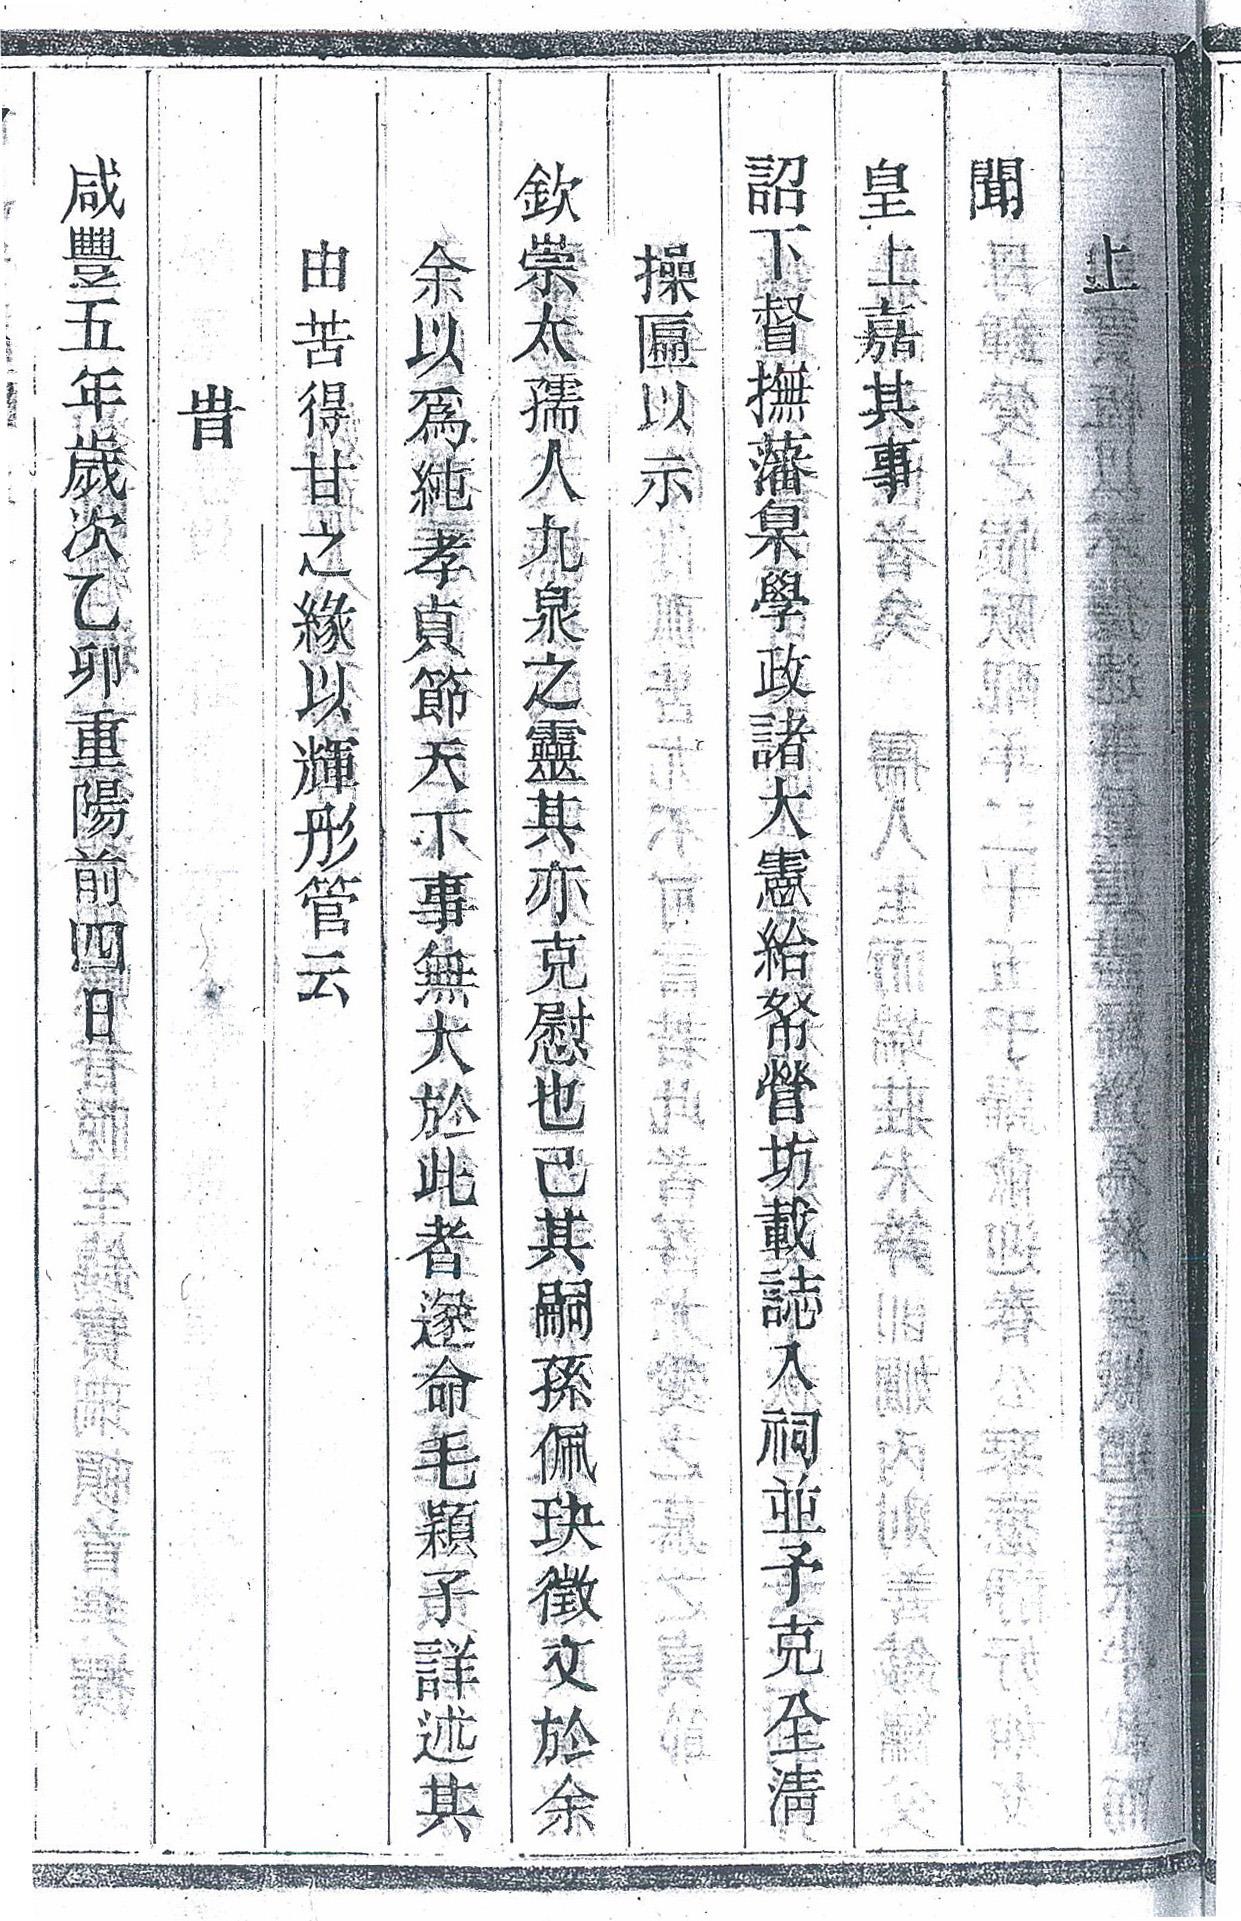 上
聞
皇上嘉其事
詔下督撫藩臬學政諸大憲給帑營坊載誌入祠並予克全淸
操匾以示
欽崇太孺人九泉之靈其亦克慰也已其嗣孫佩玦徵文於余
余以爲純孝貞節天下事無大於此者遂命毛穎子詳述其
由苦得甘之緣以輝彤管云
旹
咸豐五年歲次乙卯重陽前四日